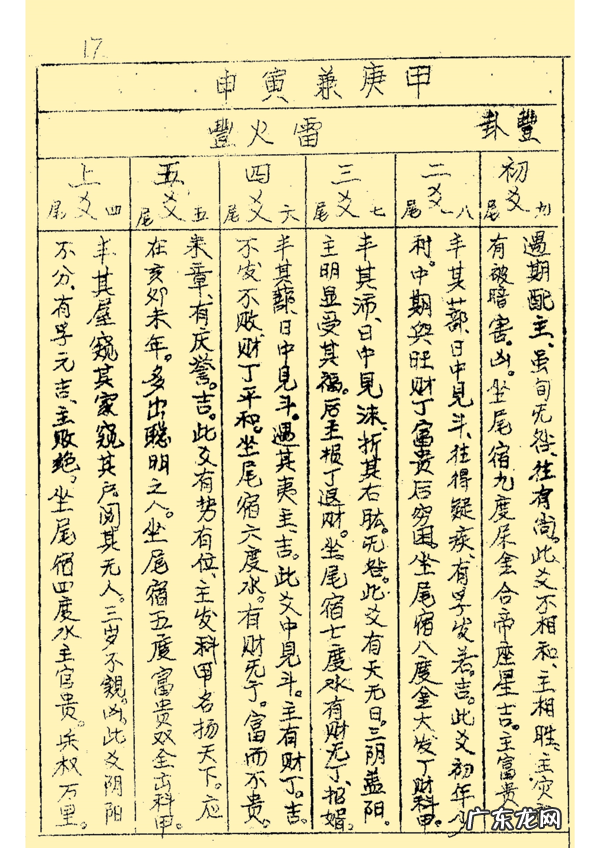 17
甲庚兼寅申
豐卦
雷火豐
初爻 尾九
遇期配主、虽旬无咎、往有尚。此爻不相和、主相胜、主灾
有破暗害。凶。坐尾宿九度屎金合帝座星吉。主富贵
二爻 尾八
丰其蔀、日中見斗、往得疑疾、有孚发若。吉。此爻初年少
利。中期兴旺财丁富贵后穷困。坐尾宿八度金大发丁财科甲。
三爻 尾七
丰其沛、日中見沬、折其右肱。无咎。此爻有天无日。三阴蓋阳。
主明显受其福。后主损丁退财。坐尾宿七度水有财无丁、招婿。
四爻 尾六
丰其蔀、日中見斗。遇其夷主。吉。此爻中見斗。主有财丁。吉。
不发不败。财丁平和。坐尾宿六度水。有财无丁。富而不贵。
五爻 尾五
来章、有庆誉。吉。此爻有势有位、主发科甲名扬天下。应
在亥卯未年。多出聪明之人。坐尾宿五度富贵双全出科甲。
上爻 尾四
丰其屋窥其家窥其户、阅其无人。三岁不覿。凶。此爻阴阳
不分、有孚元吉、主败绝。坐尾宿四度水主官贵。兵权万里。
广东龙网